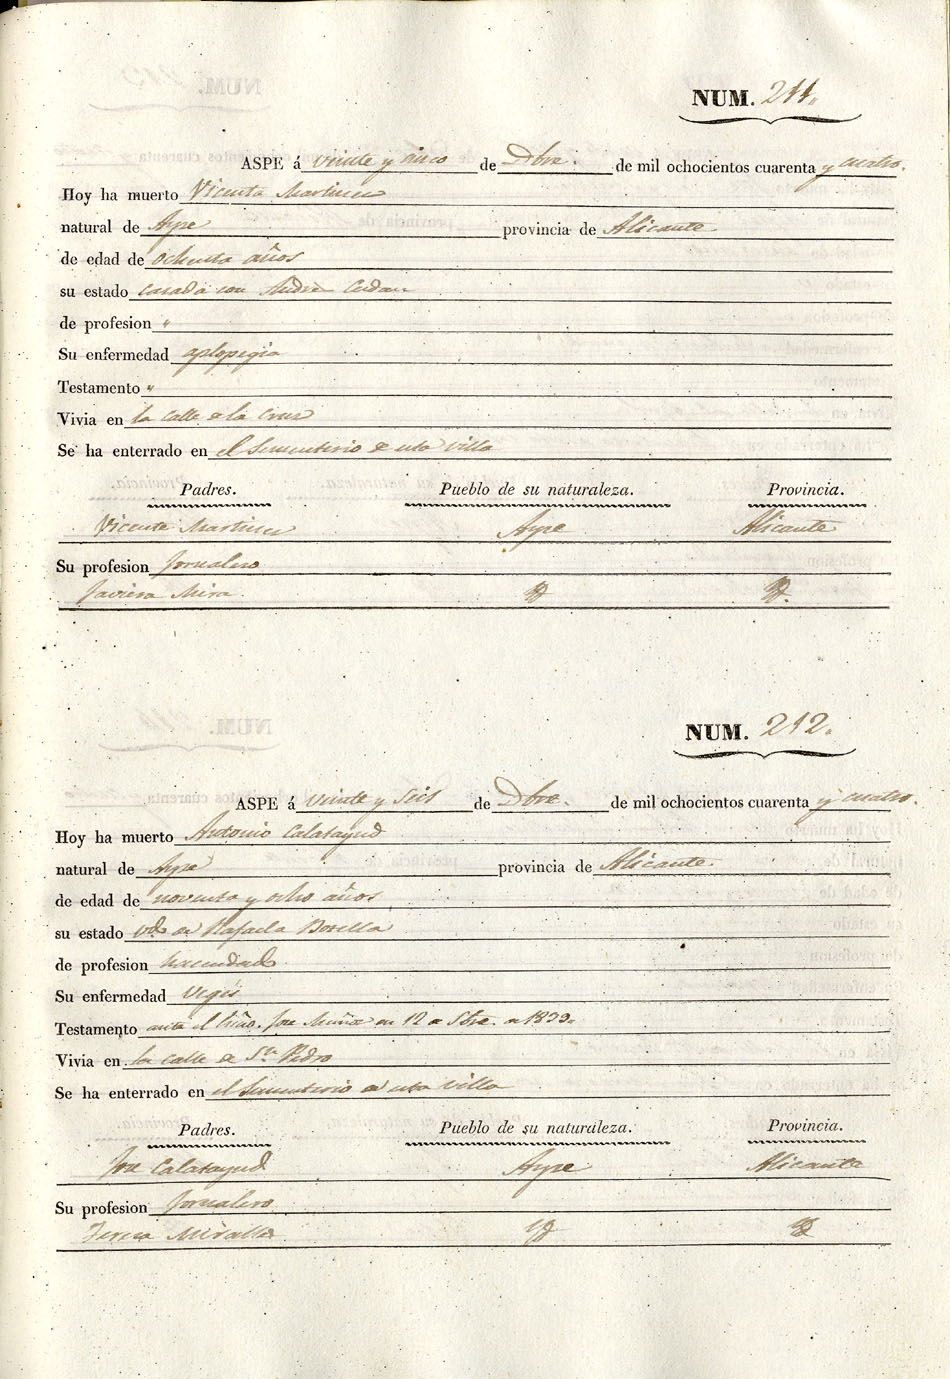 NUM. 211.
ASPE á veinte y cinco de Dbre. de mil ochocientos cuarenta y cuatro.
Hoy ha muerto Vicenta Martinez
natural de Aspe provincia de Alicante
de edad de ochenta años
su estado casada con
de profesion "
Su enfermedad aplopegia
Testamento "
Vivia en la calle de la Cruz
Se ha enterrado en el Sementerio de esta villa
Padres. Pueblo de su naturaleza. Provincia.
Vicente Martinez Aspe Alicante
Su profesion Jornalero
Javiera Mira Yd Yd.
NUM. 212.
ASPE á veinte y seis de Dbre. de mil ochocientos cuarenta y cuatro.
Hoy ha muerto Antonio Calatayud
natural de Aspe provincia de Alicante.
de edad de noventa y ocho años
su estado vdo de Rafaela Botella
de profesion hacendado
Su enfermedad vegés
Testamento ante el Esno. Jose Muñoz en 12 de Sbre. de 1839.
Vivia en la calle de Sn. Pedro
Se ha enterrado en el Sementerio de esta villa
Padres. Pueblo de su naturaleza. Provincia.
Jose Calatayud Aspe Alicante
Su profesion Jornalero
Teresa Miralles Yd Yd